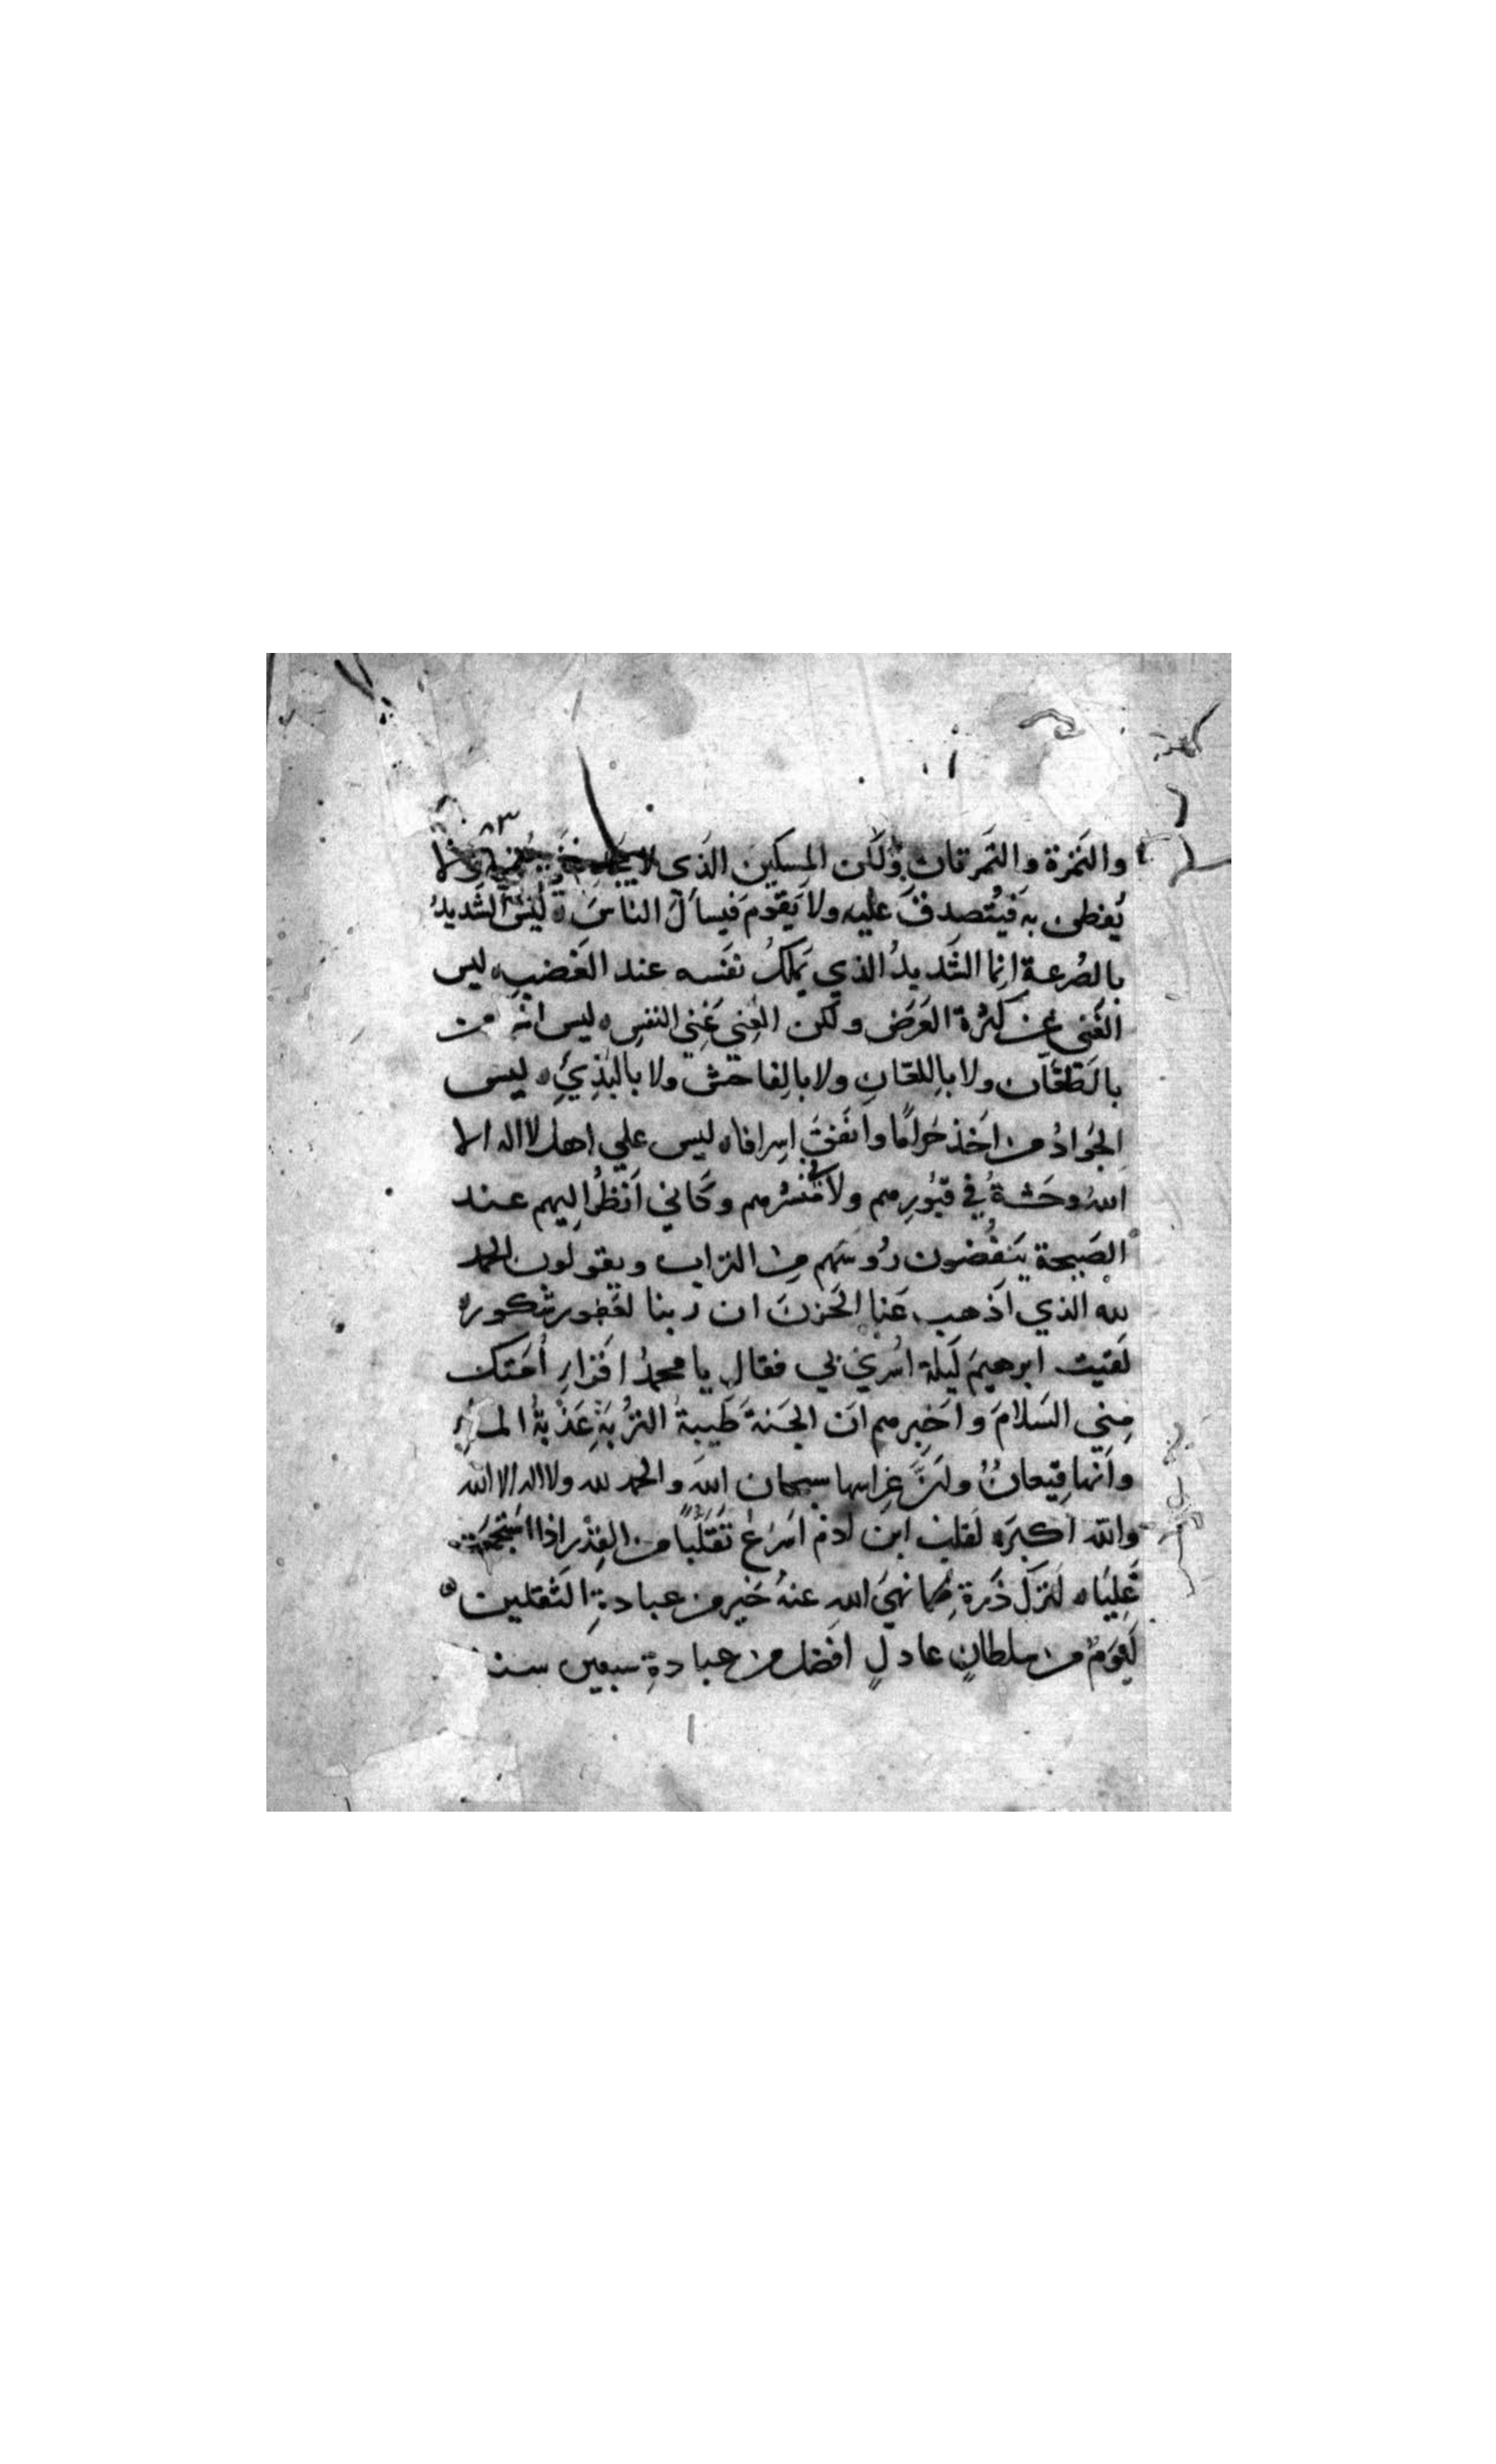 ٨٣
والتَمرة والتَمرتان ولَكن المِسكين الذَى لا يَجِد غنًى يُغنيه ولا
يُفطَى به فيُتصدق عليه ولا يَقوُم فَيسأل الناسَ ه ليسَ الشَديدُ
بالصُرعة انِما الشَديدُ الذي يَملكُ نفَسه عند الغَضب ه ليس
الغَنى عن كَثرة العَرَض ولكن الغِنى غِنى النفسِ ه ليس
بالطَعّان ولا باِللعّانِ ولا بالِفاحش ولا بالبَذِيِّ ه ليس
الجَوادُ من اَخَذ حَرامًا واَنفَقَ اِسرافا ه ليس علي اهل لا اله الا
اللهُ وحَشةُ في قبُورِهم ولا مَنشرهم وكَاني اَنظُر اليهم عند
الصَيحة يَنفُضون رُوسَهم من التراب ويقولون الحمد
لله الذي اَذهب عَنا الحَزنَ ان ربنا لغَفور شكور ه
لَقيت ابرهيمَ لَيلة اسُريَ بي فقال يا محمدُ اقَرا اُمَتك
مِني السَلامَ واَخبرهم اَن الجَنةَ طَيبةُ التُربَةِ عَذْبةُ
واَنها قيِعانٌ واَنَّ غِراسها سبحان الله والحمد لله ولا اله الا الله
والله اكبرَ ه لَقلب ابن ادمَ اَسرَعُ تَقَلُّبًا من القِدْر اذا استَجمَعت
غَليَا ه لَتركُ ذَرة مِما نهيَ الله عنهُ خَير من عبادةِ الثَقلين ه
لَيَومٌ من سلطانٍ عادلٍ افَضل من عبادةِ سبعين سنة